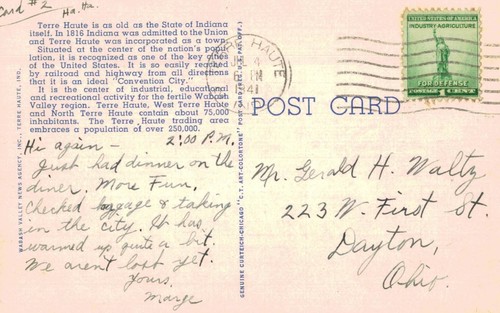 Card #2
Ha. Ha.
Terre Haute is as old as the State of Indiana
itself. In 1816 Indiana was admitted to the Union
and Terre Haute was incorporated as a town.
Situated at the center of the nation's popu-
lation, it is recognized as one of the key cities
of the United States. It is so easily reached
by railroad and highway from all directions
that it is an ideal "Convention City."
It is the center of industrial, educational
and recreational activity for the fertile Wabash
Valley region. Terre Haute, West Terre Haute
and North Terre Haute contain about 75,000
inhabitants. The Terre Haute trading area
embraces a population of over 250,000.
2:00 P.M.
Hi again-
Just had dinner on the
diner. More Fun.
Checked luggage & taking
in the city. It has
warmed up quite a bit.
We aren't lost yet.
Yours,
Marge
WABASH VALLEY NEWS AGENCY, INC., TERRE HAUTE, IND.
GENUINE CURTEICH-CHICAGO "C.T. ART-COLORTONE" POST CARD (REG. U.S. PAT. OFF.)
TERRE HAUTE
4
1941
UNITED STATES OF AMERICA
INDUSTRY AGRICULTURE
FOR DEFENSE
POSTAGE 1 CENT
POST CARD
Mr. Gerald H. Waltz
223 W. First St.
Dayton,
Ohio.